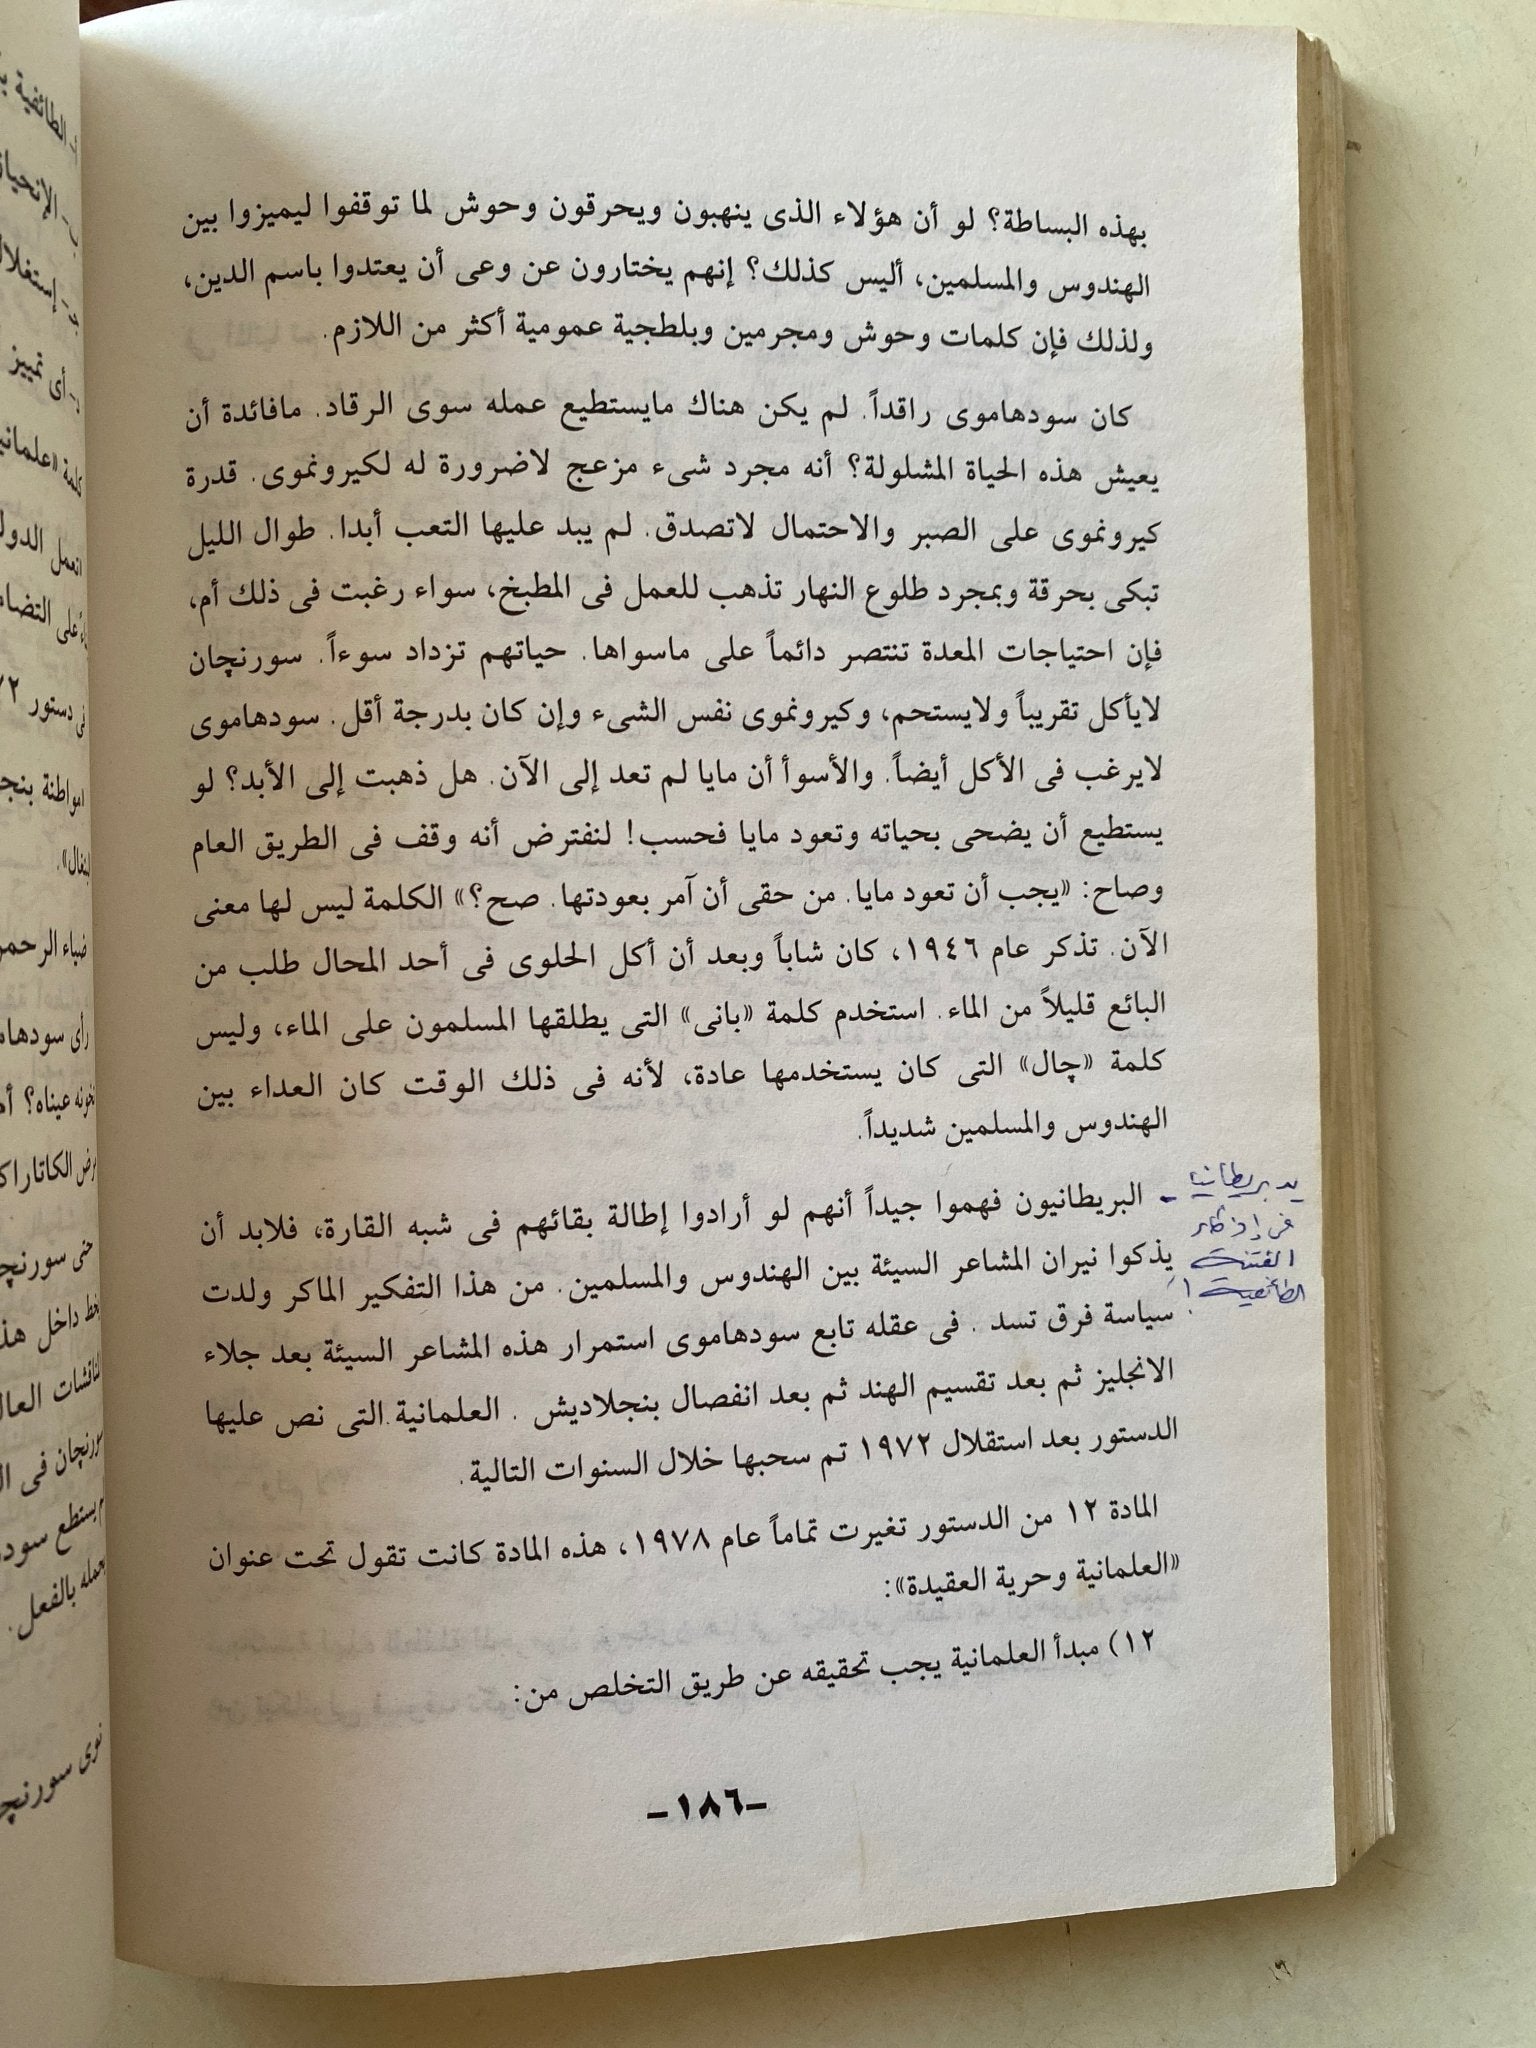 بهذه البساطة؟ لو أن هؤلاء الذى ينهبون ويحرقون وحوش لما توقفوا ليميزوا بين
الهندوس والمسلمين، أليس كذلك؟ إنهم يختارون عن وعى أن يعتدوا باسم الدين،
ولذلك فإن كلمات وحوش ومجرمين وبلطجية عمومية أكثر من اللازم.
كان سودهاموى راقداً. لم يكن هناك مايستطيع عمله سوى الرقاد. مافائدة أن
يعيش هذه الحياة المشلولة؟ أنه مجرد شىء مزعج لاضرورة له لكيرونموى. قدرة
كيرونموى على الصبر والاحتمال لاتصدق. لم يبد عليها التعب أبدا. طوال الليل
تبكى بحرقة وبمجرد طلوع النهار تذهب للعمل فى المطبخ، سواء رغبت فى ذلك أم،
فإن احتياجات المعدة تنتصر دائماً على ماسواها. حياتهم تزداد سوءاً. سورنچان
لايأكل تقريباً ولايستحم، وكيرونموى نفس الشىء وإن كان بدرجة أقل. سودهاموى
لايرغب فى الأكل أيضاً. والأسوأ أن مايا لم تعد إلى الآن. هل ذهبت إلى الأبد؟ لو
يستطيع أن يضحى بحياته وتعود مايا فحسب! لنفترض أنه وقف فى الطريق العام
وصاح: «يجب أن تعود مايا. من حقى أن آمر بعودتها. صح؟» الكلمة ليس لها معنى
الآن. تذكر عام ١٩٤٦، كان شاباً وبعد أن أكل الحلوى فى أحد المحال طلب من
البائع قليلاً من الماء. استخدم كلمة «بانى» التى يطلقها المسلمون على الماء، وليس
كلمة «چال» التى كان يستخدمها عادة، لأنه فى ذلك الوقت كان العداء بين
الهندوس والمسلمين شديداً.
البريطانيون فهموا جيداً أنهم لو أرادوا إطالة بقائهم فى شبه القارة، فلابد أن
يذكوا نيران المشاعر السيئة بين الهندوس والمسلمين. من هذا التفكير الماكر ولدت
سياسة فرق تسد . فى عقله تابع سودهاموى استمرار هذه المشاعر السيئة بعد جلاء
الانجليز ثم بعد تقسيم الهند ثم بعد انفصال بنجلاديش . العلمانية التى نص عليها
الدستور بعد استقلال ١٩٧٢ تم سحبها خلال السنوات التالية.
المادة ١٢ من الدستور تغيرت تماماً عام ١٩٧٨، هذه المادة كانت تقول تحت عنوان
«العلمانية وحرية العقيدة»:
١٢) مبدأ العلمانية يجب تحقيقه عن طريق التخلص من:
-١٨٦-
يد بريطانيا
فى إذكاء
الفتنة
الطائفية !